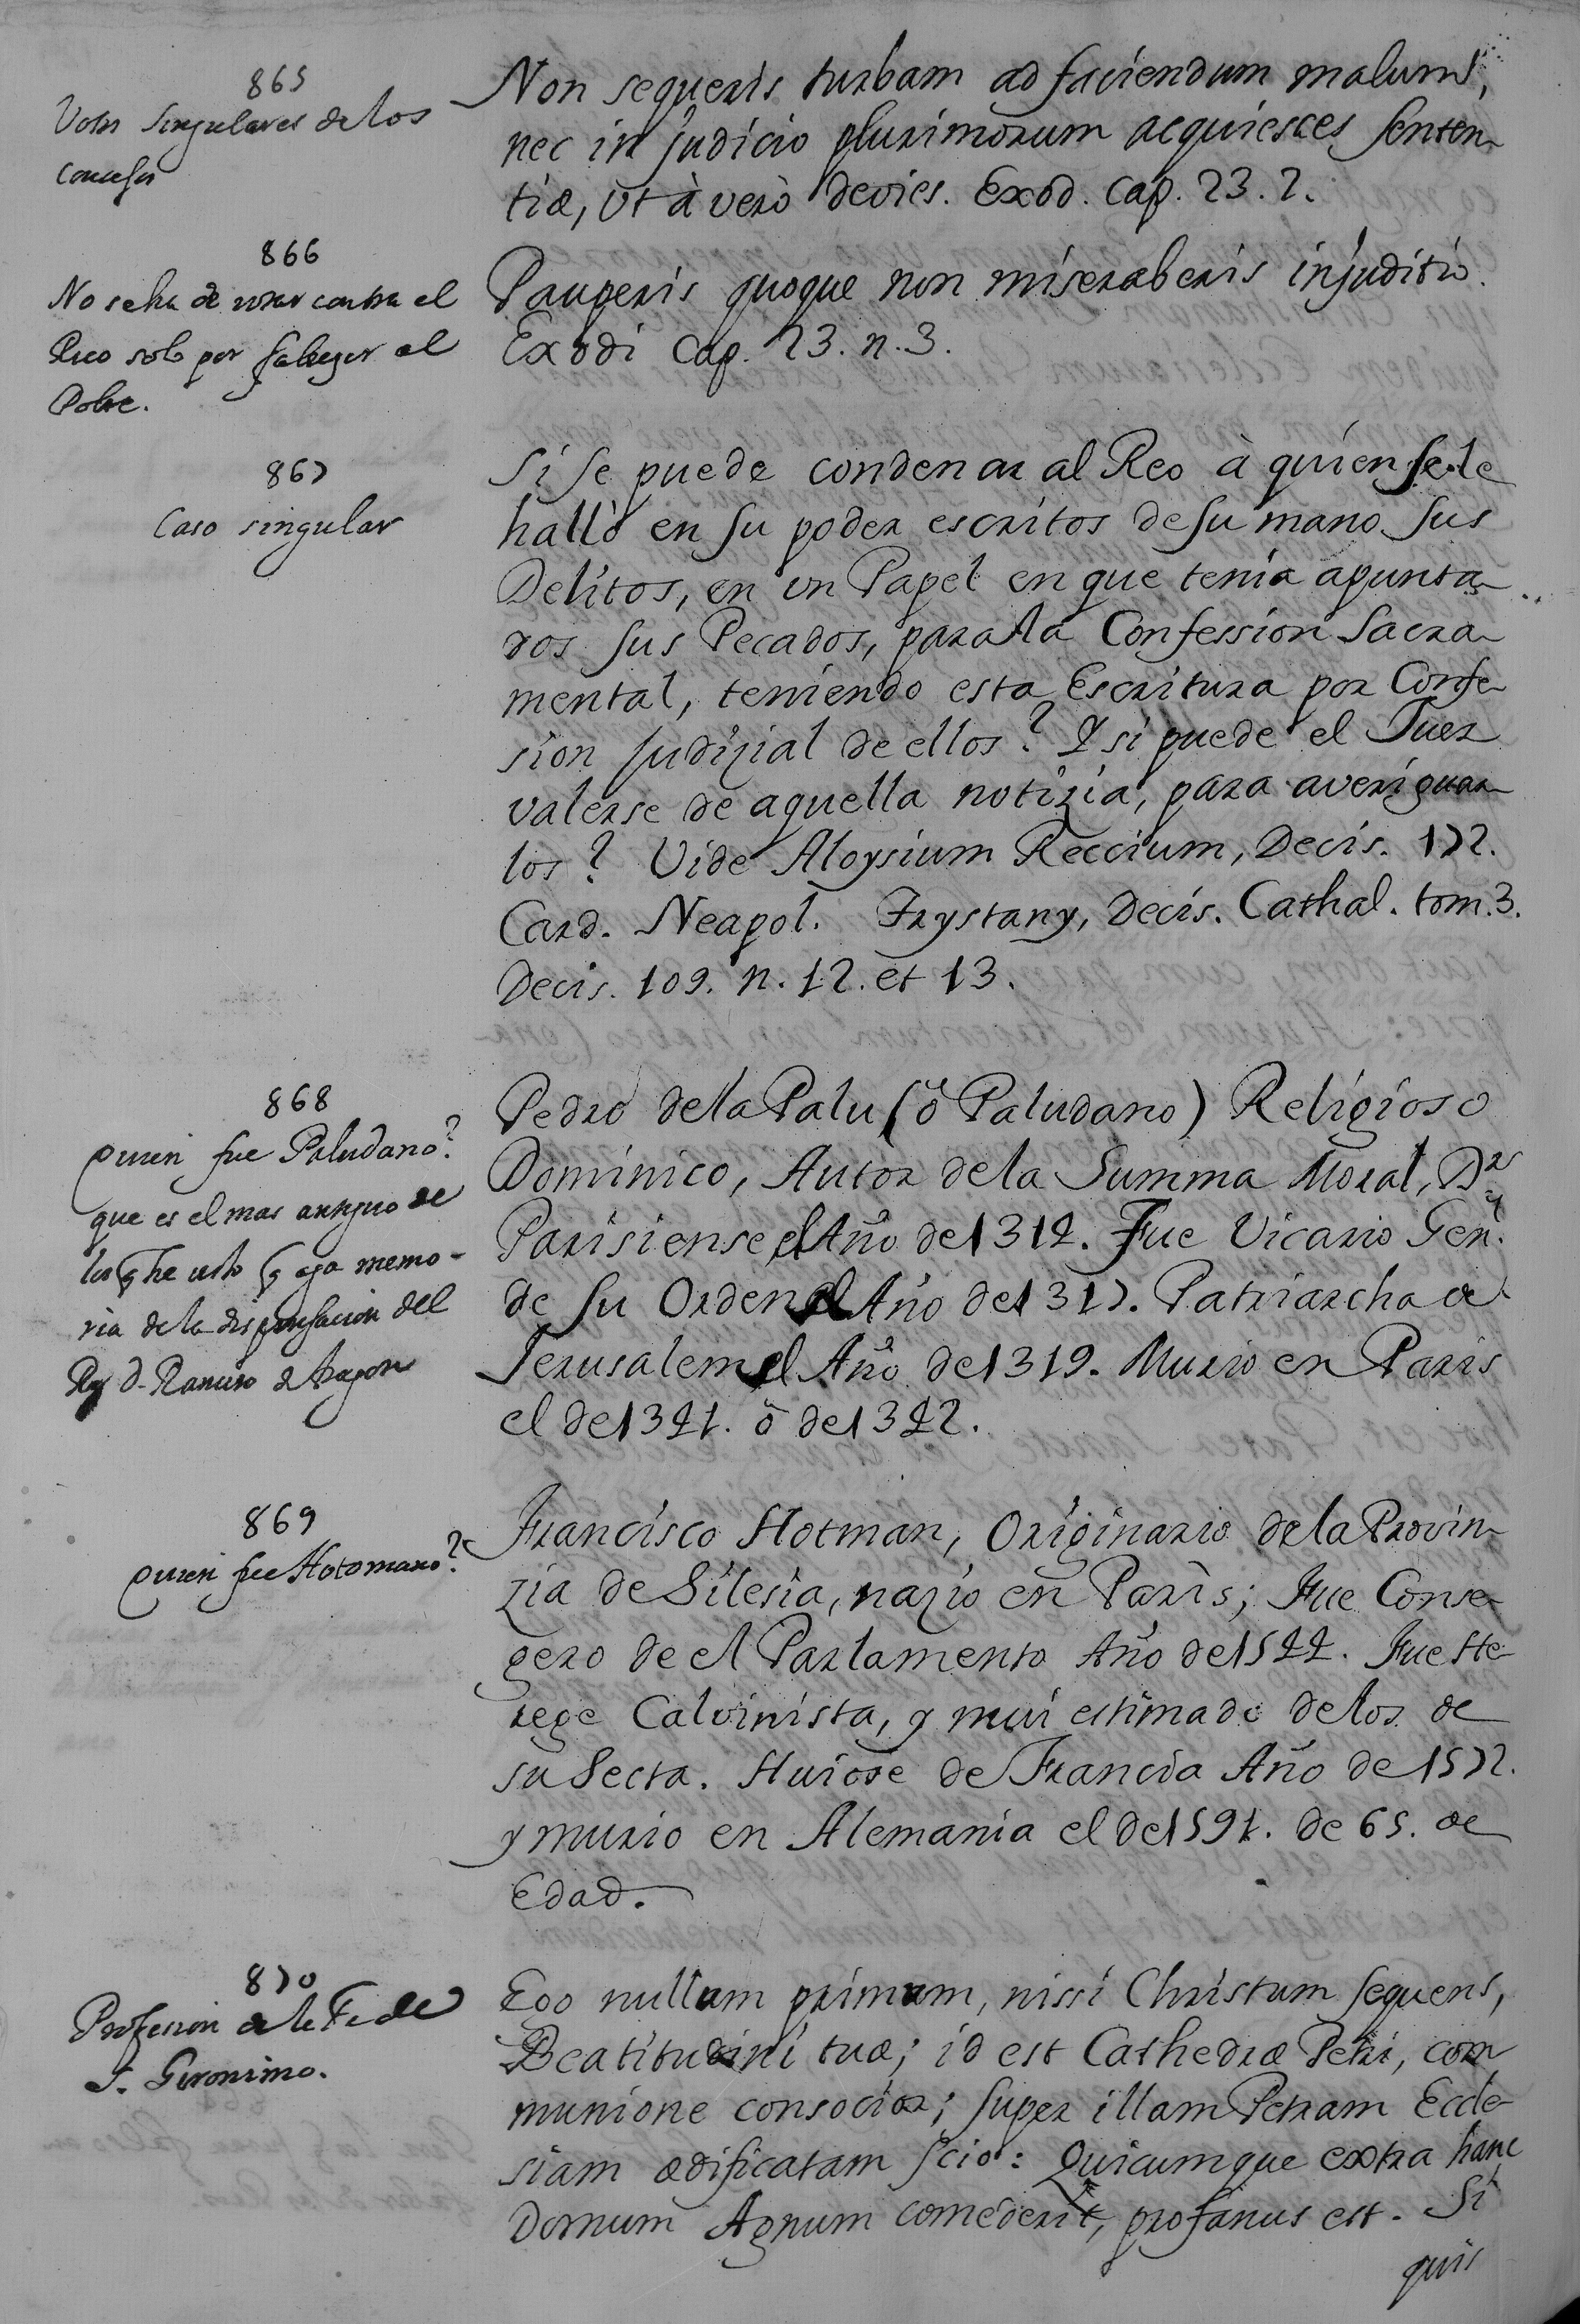 865
Votos singulares de los
consejos
Non sequeris turbam ad faciendum malum,
nec in judicio plurimorum acquiesces senten-
tiæ, Ut à verò devies. Exod. cap. 23. 2.
866
No se ha de votar contra el
Rico solo por faborezer al
Pobre.
Pauperis quoque non miseraberis in juditio.
Exodi Cap. 23. n. 3.
867
Caso singular
Si se puede condenar al Reo à quien se le
hallò en su poder escritos de su mano sus
Delitos, en un Papel en que tenia apunta-
dos sus Pecados, para la Confession Sacra-
mental, teniendo esta Escritura por Confe-
sion Judizial de ellos? Y si puede el Juez
valerse de aquella notizia, para averiguar-
los? Vide Aloysium Reccium, Decis. 172.
Card. Neapol. Trystany, Decis. Cathal. tom. 3.
Decis. 109. n. 12. et 13.
868
Quien fue Paludano?
que es el mas antiguo de
los q he visto q aga memo-
ria de la dispensacion del
Rey D. Ramiro de Aragon
Pedro de la Palu (ô Paludano) Religioso
Dominico, Autor de la Summa Moral, Dr
Parisiense el Año de 1314. Fue Vicario Gen.
de su Orden el Año de 1317. Patriarcha de
Jerusalem el Año de 1319. Murio en Paris
el de 1341. ô de 1342.
869
Quien fue Hotomano?
Francisco Hotman, Originario de la Provin-
zia de Silesia, nazio en Paris; Fue Conse-
gero de el Parlamento Año de 1544. Fue He-
rege Calvinista, y mui estimado de los de
su Secta. Huiose de Francia Año de 1572.
y murio en Alemania el de 1591. de 65. de
Edad.
870
Profesion de la Fe de
S. Geronimo.
Ego nullum primum, nissi Christum sequens,
Beatitudini tuæ; id est Cathedræ Petri, com
munione consocior; super illam Petram Eccle-
siam ædificatam scio: Quicumque extra hanc
Domum Agnum comederit, profanus est. Si
quis